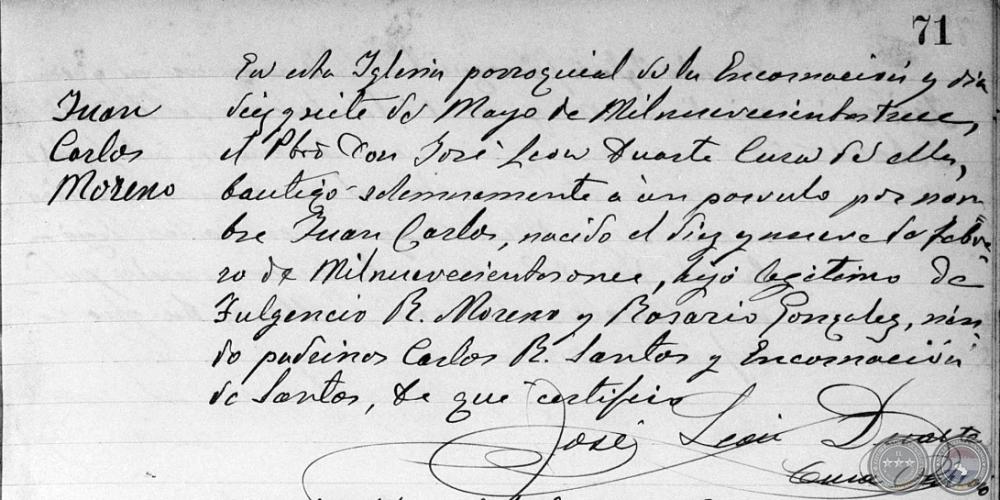 71
Juan
Carlos
Moreno
En esta Iglesia parroquial de la Encarnación y dia
diez y siete de Mayo de Mil nuevecientos trece,
el Pbro Don José Leon Duarte Cura de ella,
bautizó solemnemente a un parvulo por nom
bre Juan Carlos, nacido el diez y nueve de febre=
ro de Mil nuevecientos once, hijo legitimo de
Fulgencio R. Moreno y Rosario Gonzalez, sien
do padrinos Carlos R. Santos y Encarnación
de Santos, de que certifico
José León Duarte
Cura